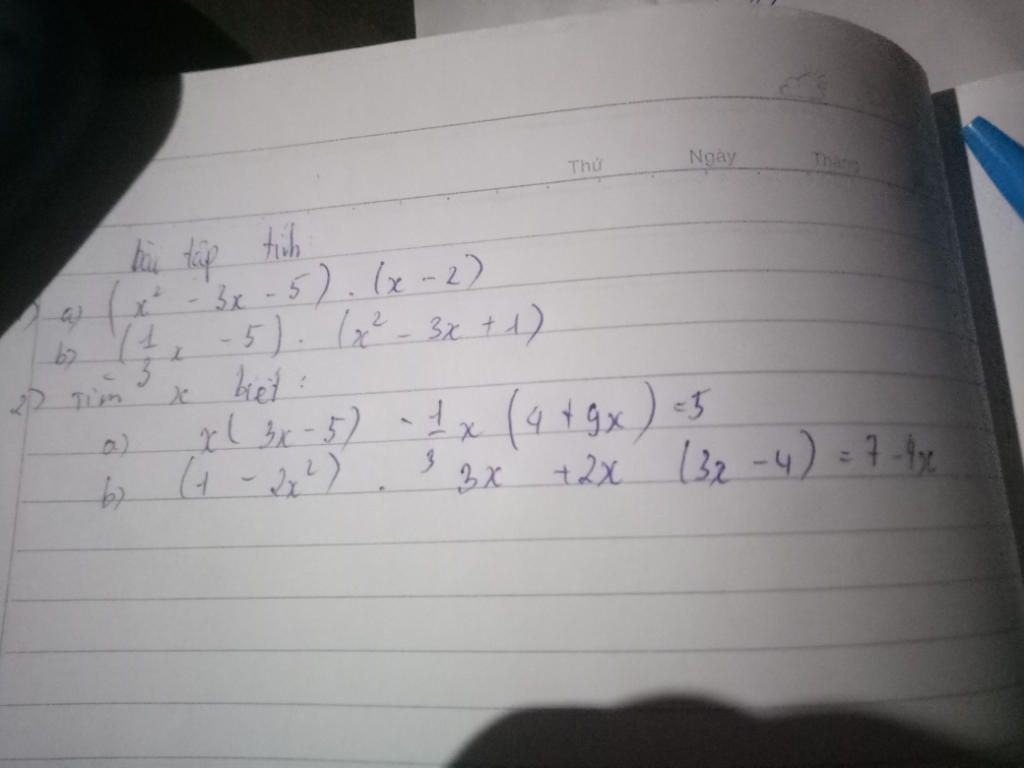 Thứ Ngày Tháng
bài tập tính:
1) a) (x² - 3x - 5) . (x - 2)
b) (1/3 x - 5) . (x² - 3x + 1)
2) Tìm x biết:
a) x( 3x - 5) - 1/3 x (4 + 9x) = 5
b) (1 - 2x²) . 3x + 2x (3x - 4) = 7 - 9x